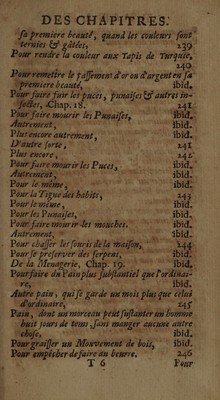 DES CHAPITRES.
sa premiere beauté, quand les couleurs sont
ternies & gâtées, 239
Pour rendre la couleur aux Tapis de Turquie,
240
Pour remettre le passement d'or ou d'argent en sa
premiere beauté, ibid.
Pour faire fuir les puces, punaises & autres in-
sectes, Chap. 18. 241
Pour faire mourir les Punaises, ibid.
Autrement, ibid.
Plus encore autrement, ibid.
D'autre sorte, 241
Plus encore, 242
Pour faire mourir les Puces, ibid.
Autrement, ibid.
Pour le même, ibid.
Pour la Tigne des habits, 243
Pour le même, ibid.
Pour les Punaises, ibid.
Pour faire mourir les mouches. ibid.
Autrement, ibid.
Pour chasser les souris de la maison, 244
Pour se preserver des serpens, ibid.
De la Menagerie, Chap. 19. ibid.
Pour faire du Pain plus substantiel que l'ordinai-
re, ibid.
Autre pain, qui se garde un mois plus que celui
d'ordinaire, 245
Pain, dont un morceau peut sustanter un homme
huit jours de tems, sans manger aucune autre
chose, ibid.
Pour graisser un Mouvement de bois, ibid.
Pour empêcher de faire au beurre. 246
T 6 Pour